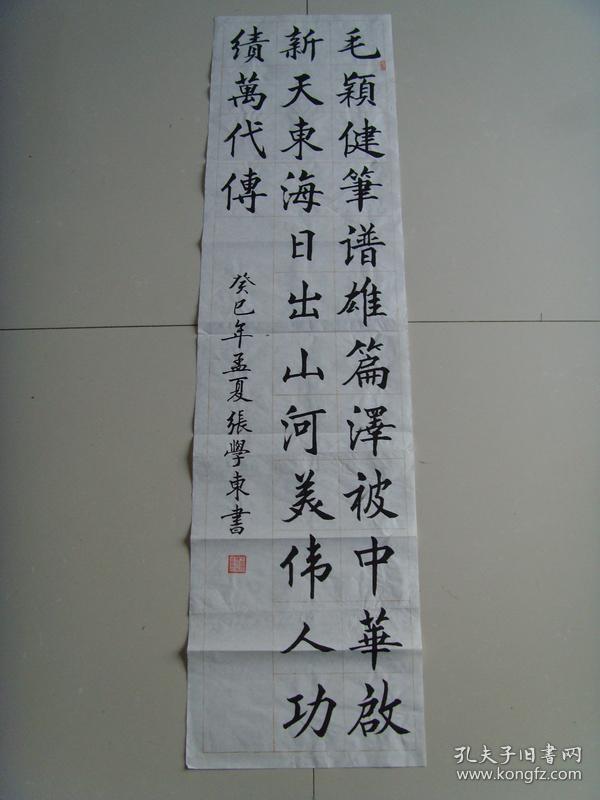 毛穎健筆谱雄篇澤被中華啟
新天東海日出山河美伟人功
績萬代傳
癸巳年孟夏張學東書
孔夫子旧书网
www.kongfz.com